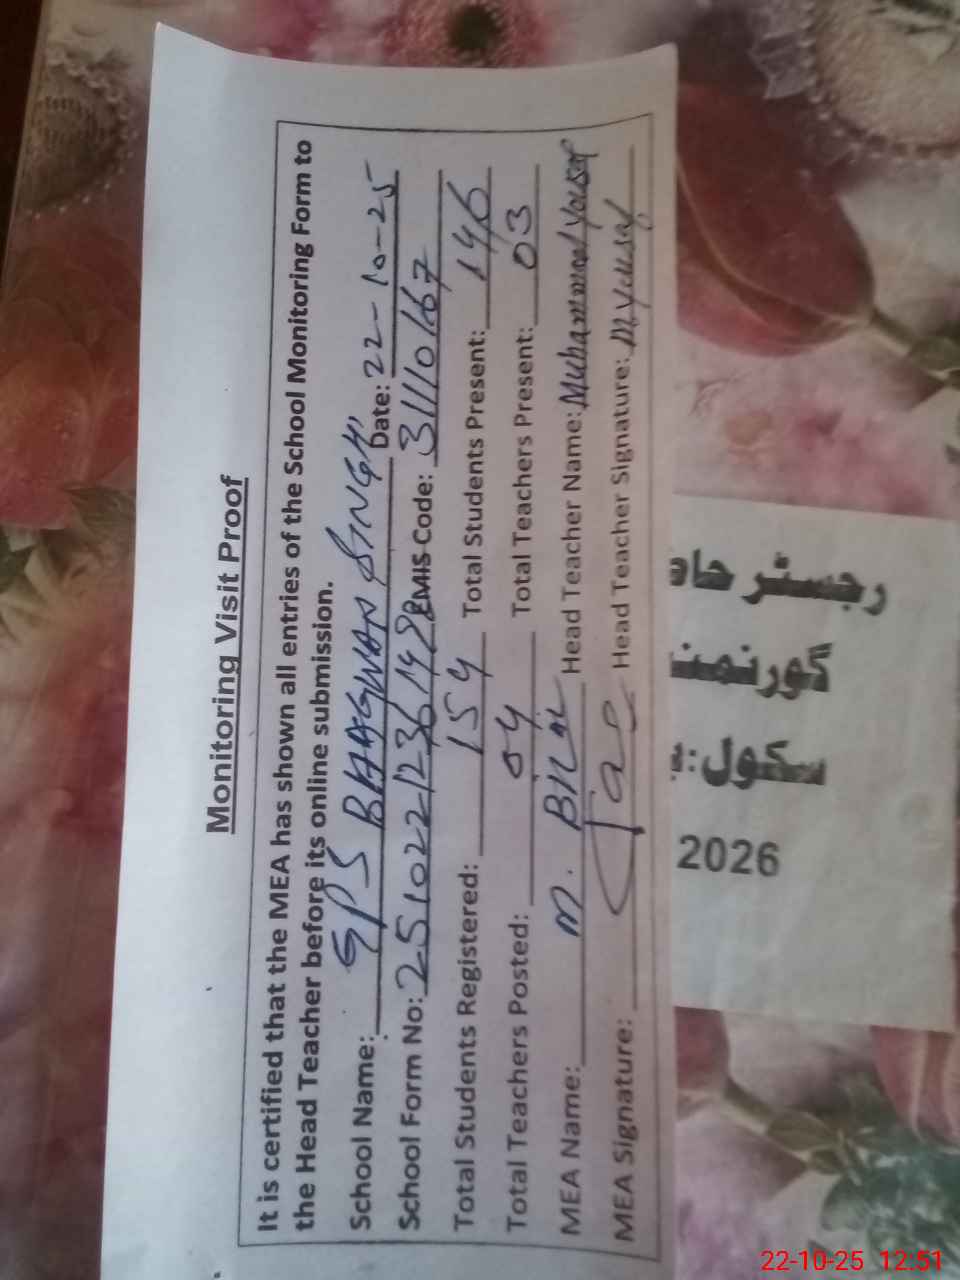 Monitoring Visit Proof
It is certified that the MEA has shown all entries of the School Monitoring Form to
the Head Teacher before its online submission.
School Name: GPS BHAGWAN SINGH Date: 22-10-25
School Form No: EMIS Code: 31110167
Total Students Registered: 154 Total Students Present: 146
Total Teachers Posted: 04 Total Teachers Present: 03
MEA Name: M. BILAL Head Teacher Name: Muhammad Yousaf
MEA Signature: Head Teacher Signature: M Yousaf
رجسٹر حاض
گورنمنٹ
سکول:
2026
22-10-25 12:51